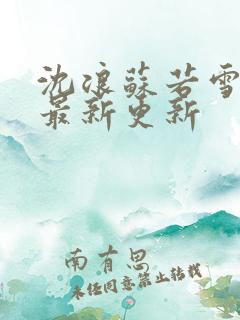 沈浪蘇若雪
最新更新
南有思
未经同意禁止转载